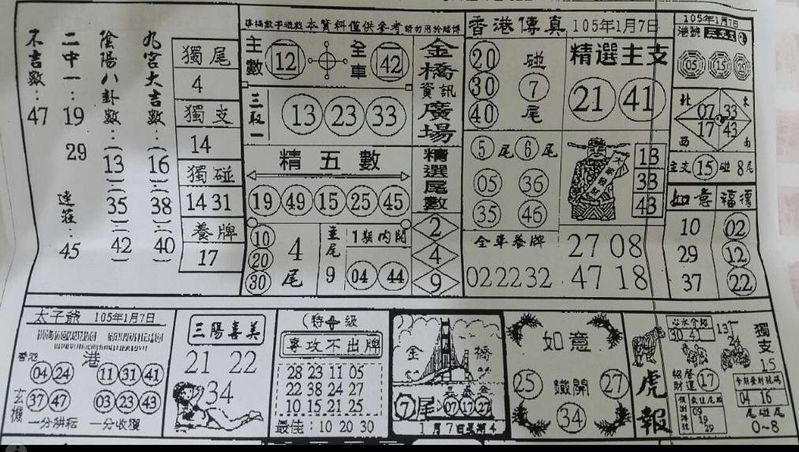 不吉數：47
二中一：19
29
連莊：45
陰陽八卦數：
13
35
42
九宮大吉數：
16
38
40
獨尾
4
獨支
14
獨碰
14 31
養牌
17
本資料僅供參考
主數 12
全車 42
三取一
13 23 33
精五數
19 49 15 25 45
10
20
30
4尾
9
1期內開
04 44
金橋資訊廣場
精選尾數
2
4
9
香港傳真 105年1月7日
20
30
40
碰
7
尾
精選主支
21 41
5尾 6尾
05 36
35 46
13
33
43
全車養牌
02 22 32
27 08
47 18
105年1月7日
港號
05 15
北 東
07 33
17 43
西 南
主支 15 碰 8尾
如意 福德
10 02
29 12
37 22
太子爺 105年1月7日
香港
港
04 24
11 31 41
玄機
37 47
03 23 43
一分耕耘 一分收穫
三陽喜美
21 22
34
(特 級
專攻不出牌
28 23 11 05
22 38 24 27
10 15 21 25
最佳：10 20 30
金橋
7尾 07 17 27
1月7日星期4
如意
25 鐵開 27
34
虎報
心水介紹
30 4
13
24
獨支
15
招財運 17
09
19
29
04 16
尾碰尾
0~8